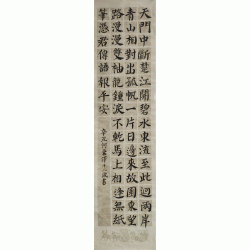 天門中斷楚江開碧水東流至此迴兩岸
青山相對出孤帆一片日邊來故園東望
路漫漫雙袖龍鍾淚不乾馬上相逢無紙
筆憑君傳語報平安
書